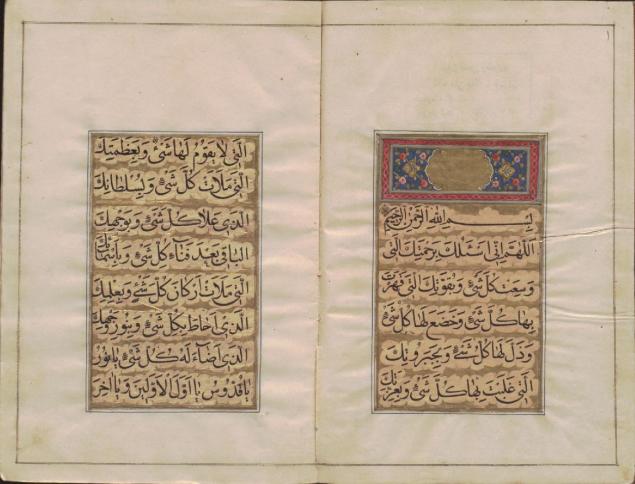 بِسْمِ اللهِ الرَّحْمٰنِ الرَّحِيمِ
اَللّٰهُمَّ اِنّى اَسْئَلُكَ بِرَحْمَتِكَ الَّتى
وَسِعَتْ كُلَّ شَىْءٍ وَبِقُوَّتِكَ الَّتى قَهَرْتَ
بِها كُلَّ شَىْءٍ وَخَضَعَ لَها كُلُّ شَىْءٍ
وَذَلَّ لَها كُلُّ شَىْءٍ وَبِجَبَرُوتِكَ
الَّتى غَلَبْتَ بِها كُلَّ شَىْءٍ وَبِعِزَّتِكَ
الَّتى لا يَقُومُ لَها شَىْءٌ وَبِعَظَمَتِكَ
الَّتى مَلَأَتْ كُلَّ شَىْءٍ وَبِسُلْطانِكَ
الَّذى عَلا كُلَّ شَىْءٍ وَبِوَجْهِكَ
الْباقى بَعْدَ فَناءِ كُلِّ شَىْءٍ وَبِاَسْمائِكَ
الَّتى مَلَأَتْ اَرْكانَ كُلِّ شَىْءٍ وَبِعِلْمِكَ
الَّذى اَحاطَ بِكُلِّ شَىْءٍ وَبِنُورِ وَجْهِكَ
الَّذى اَضاءَ لَهُ كُلُّ شَىْءٍ يا نُورُ
يا قُدُّوسُ يا اَوَّلَ الْاَوَّلينَ وَيا اخِرَ